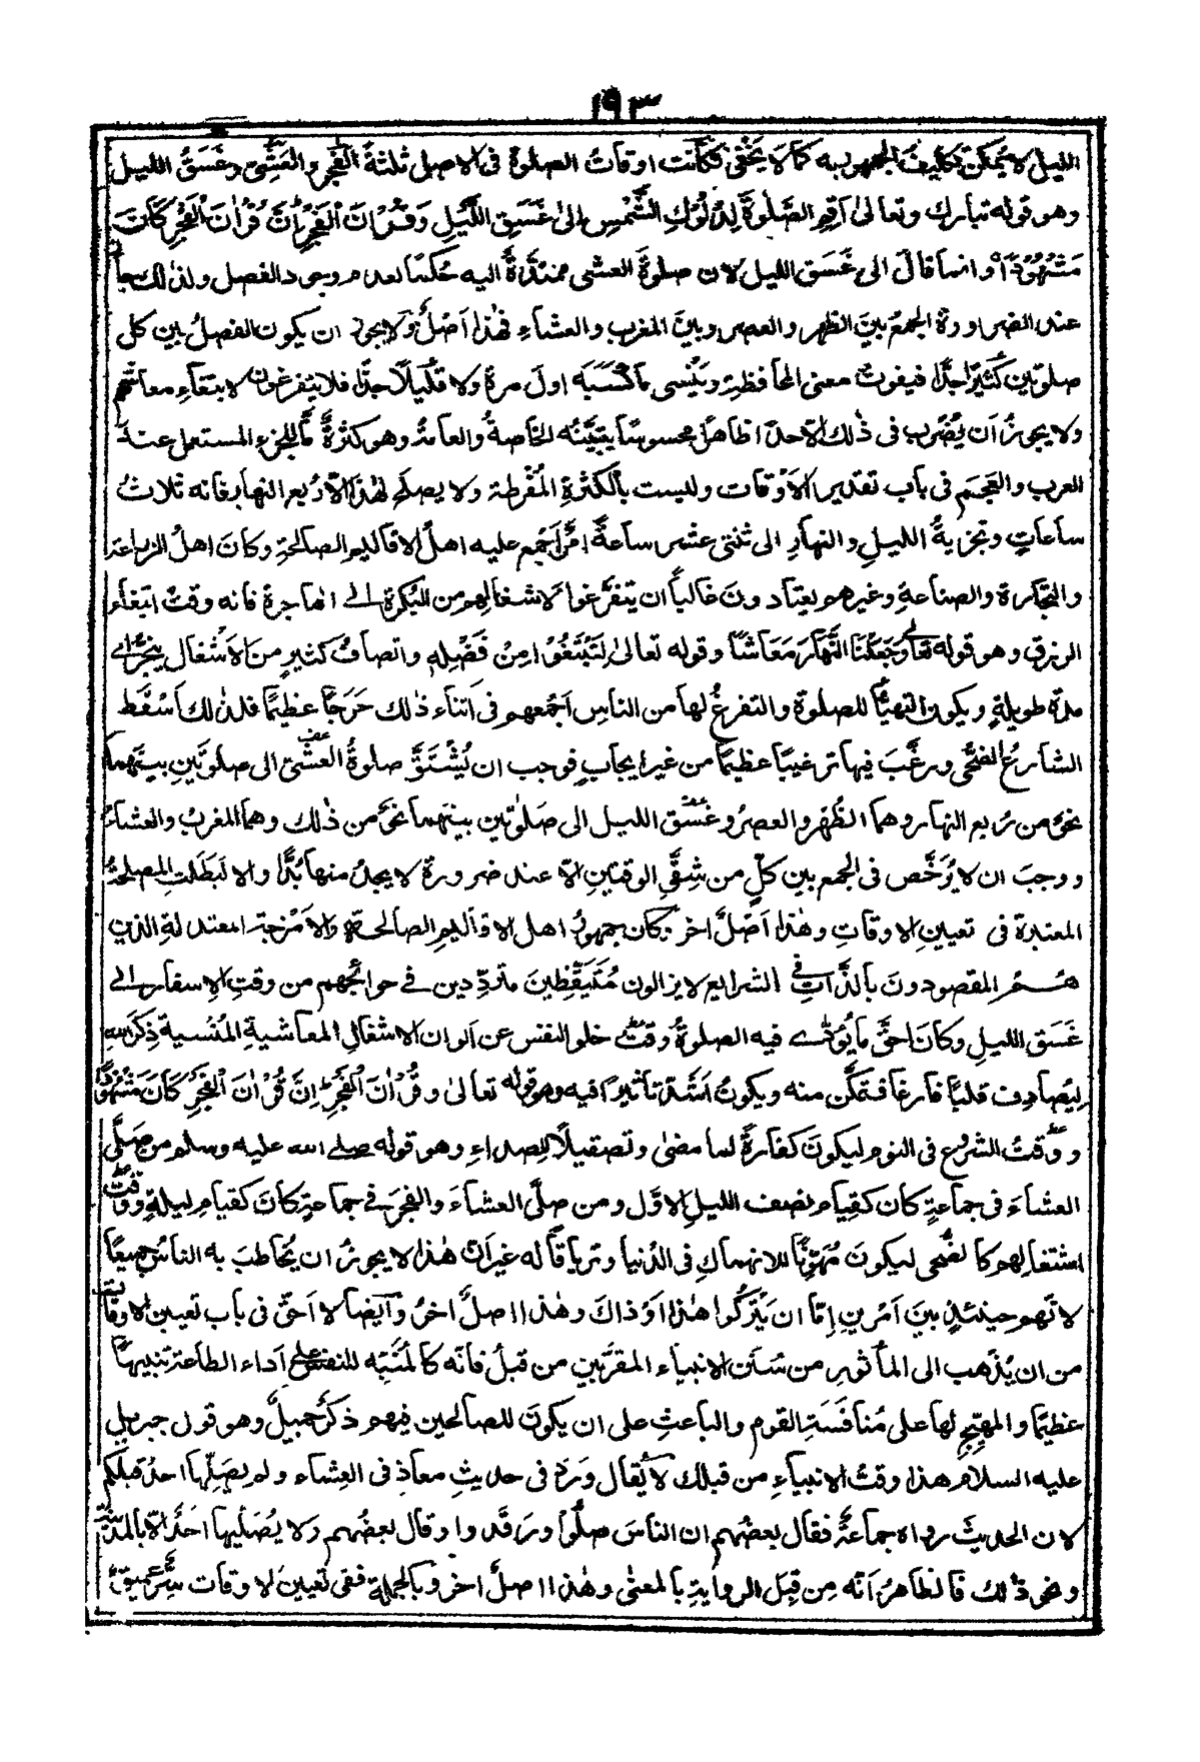 ١٩٣
الليل لا يمكن تكليف الجمهور به كما لا يخفى فكانت اوقات الصلوة فى الاصل ثلثة الفجر والعشى وغسق الليل
وهو قوله تبارك وتعالىٰ اَقِمِ الصَّلٰوةَ لِدُلُوْكِ الشَّمْسِ اِلىٰ غَسَقِ اللَّيْلِ وَقُرْاٰنَ الْفَجْرِ اِنَّ قُرْاٰنَ الْفَجْرِ كَانَ
مَشْهُوْدًا وانما قال الى غسق الليل لان صلوة العشى ممتدة اليه حكما لعدم وجود الفصل ولذلك جاز
عند الضرورة الجمع بين الظهر والعصر وبين المغرب والعشاء فهذا اصل ولا يجوز ان يكون الفصل بين كل
صلوتين كثيرا جدا فيفوت معنى المحافظة وينسى ما كسبه اول مرة ولا قليلا جدا فلا يتفرغون لابتغاء معاشهم
ولا يجوز ان يضرب فى ذلك الا حدا ظاهرا محسوسا يتبينه الخاصة والعامة وهو كثرة ما للجزء المستعمل عند
العرب والعجم فى باب تقدير الاوقات وليست بالكثرة المفرطة ولا يصلح لهذا الا ربع النهار فانه ثلاث
ساعات وتجزية الليل والنهار الى ثنتى عشر ساعة امر اجمع عليه اهل الاقاليم الصالحة وكان اهل الزراعة
والتجارة والصناعة وغيرهم يعتادون غالبا ان يتفرغوا لاشغالهم من البكرة الى الهاجرة فانه وقت ابتغاء
الرزق وهو قوله تعالى وَجَعَلْنَا النَّهَارَ مَعَاشًا وقوله تعالىٰ لِتَبْتَغُوْا مِنْ فَضْلِهٖ واتصاف كثير من الاشغال ينجر الى
مدة طويلة ويكون التهيؤ للصلوة والتفرغ لها من الناس اجمعهم فى اثناء ذلك حرجا عظيما فلذلك اسقط
الشارع الضحى ورغب فيها ترغيبا عظيما من غير ايجاب فوجب ان تشتق صلوة العشى الى صلوتين بينهما
نحو من ربع النهار وهما الظهر والعصر وغسق الليل الى صلوتين بينهما نحو من ذلك وهما المغرب والعشاء
ووجب ان لا يرخص فى الجمع بين كل من شقى الوقتين الا عند ضرورة لا يجد منها بدا والا لبطلت المصلحة
المعتبرة فى تعيين الاوقات وهذا اصل اخر وكان جمهور اهل الاقاليم الصالحة والامزجة المعتدلة الذين
هم المقصودون بالذات فى الشرايع لا يزالون متيقظين مترددين فى حوائجهم من وقت الاسفار الى
غسق الليل وكان احق ما يؤدى فيه الصلوة وقت خلو النفس عن الوان الاشغال المعاشية المنسية ذكر الله
ليصادف قلبا فارغا فتمكن منه ويكون اشد تأثيرا فيه وهو قوله تعالىٰ وَقُرْاٰنَ الْفَجْرِ اِنَّ قُرْاٰنَ الْفَجْرِ كَانَ مَشْهُوْدًا
ووقت الشروع فى النوم ليكون كفارة لما مضى وتصقيلا للصداء وهو قوله صلے الله عليه وسلم من صلى
العشاء فى جماعة كان كقيام نصف الليل الاول ومن صلى العشاء والفجر فى جماعة كان كقيام ليلة ووقت
اشتغالهم كالضحى ليكون مهونا للانهماك فى الدنيا وترياقا له غير ان هذا لا يجوز ان يخاطب به الناس جميعا
لانهم حينئذ بين امرين اما ان يتركوا هذا او ذاك وهذا اصل اخر وايضا لا احق فى باب تعيين الاوقات
من ان يذهب الى المأثور من سنن الانبياء المقربين من قبل فانه كالمنبه للنفس على اداء الطاعة تنبيها
عظيما والمهيج لها على منافسة القوم والباعث على ان يكون للصالحين فيهم ذكر جميل وهو قول جبريل
عليه السلام هذا وقت الانبياء من قبلك لا يقال ورد فى حديث معاذ فى العشاء ولم يصلها احد قبلكم
لان الحديث رواه جماعة فقال بعضهم ان الناس صلوا ورقدوا وقال بعضهم ولا يصليها احد الا بالمدينة
ونحو ذلك فالظاهر انه من قبل الرواية بالمعنى وهذا اصل اخر وبالجملة ففى تعيين الاوقات سر عميق